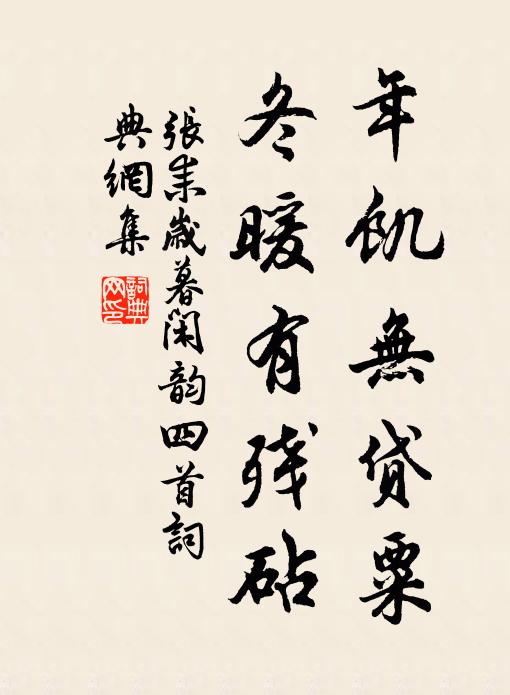 年飢無貸粟
冬暖有残砧
張耒歲暮閑韵四首詞
典網集
詞典
网印